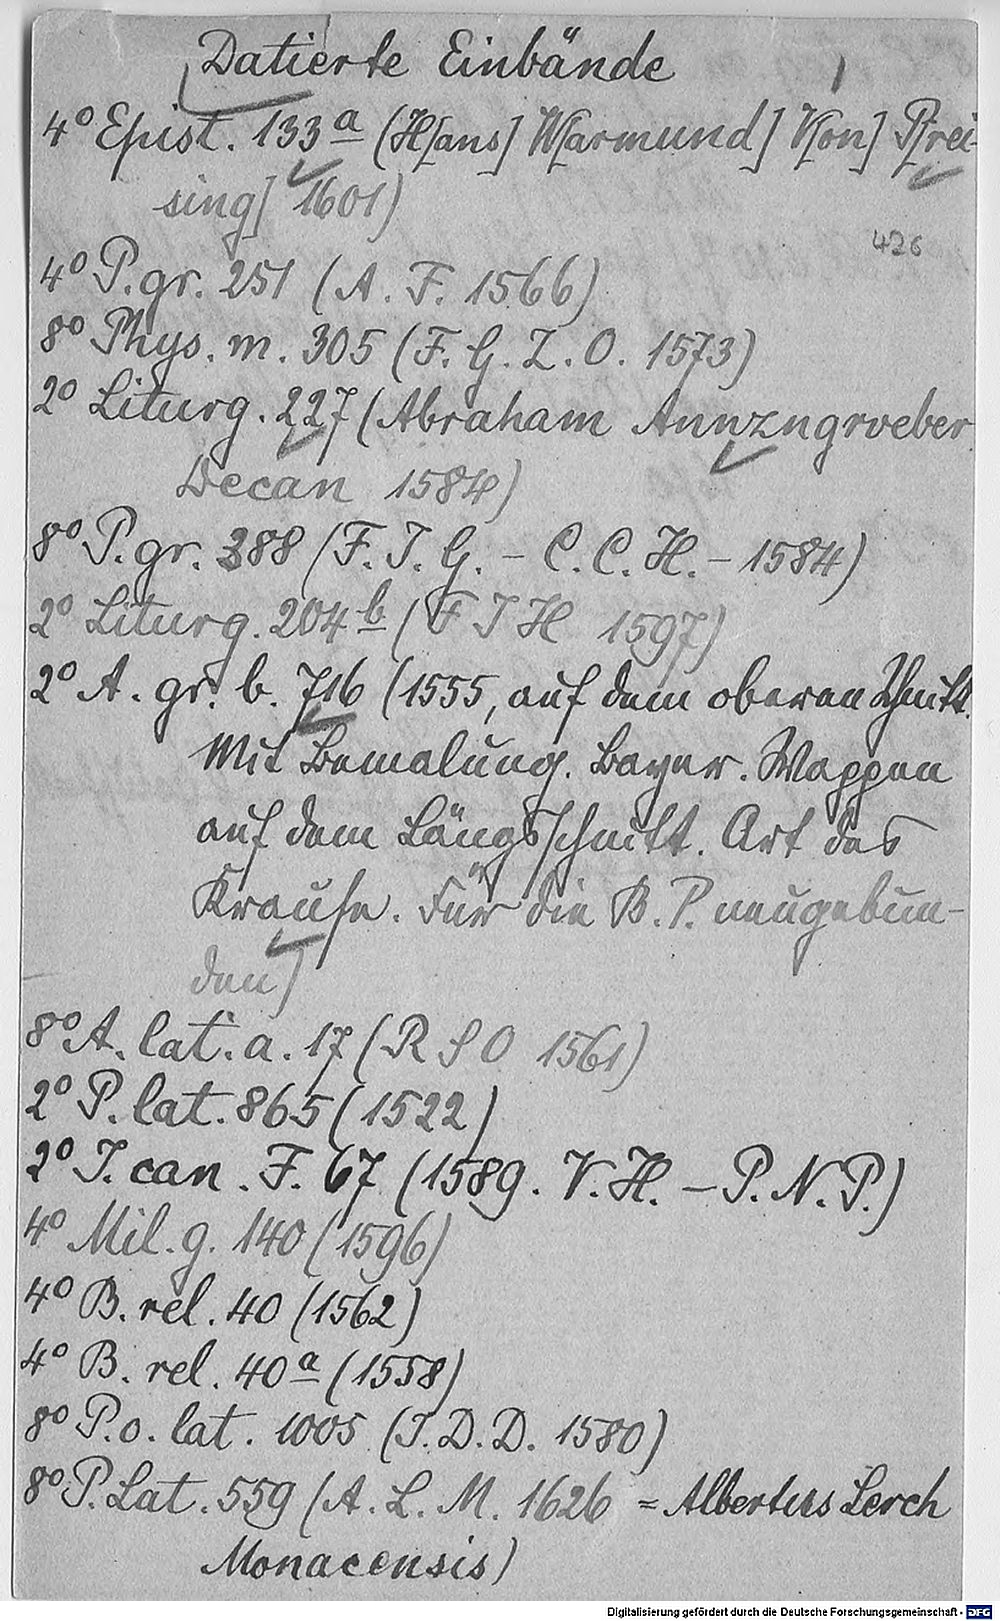 Datierte Einbände
4° Epist. 133 a (H[ans] W[armund] V[on] P[rei-
sing] 1601)
426
4° P. gr. 251 (A. F. 1566)
8° Phys. m. 305 (F. G. Z. O. 1573)
2° Liturg. 227 (Abraham Annzngrveber
Decan 1584)
8° P. gr. 388 (F. I. G. – C. C. H. – 1584)
2° Liturg. 204 b (F I H 1597)
2° A. gr. b. 716 (1555, auf dem oberen Schnitt.
Mit Bemalung. Bayer. Wappen
auf dem Längsschnitt. Art des
Krause. Für die B. P. neugebun-
den)
8° A. lat. a. 17 (R S O 1561)
2° P. lat. 865 (1522)
2° J. can. F. 67 (1589. V. H. – P. N. P.)
4° Mil. g. 140 (1596)
4° B. rel. 40 (1562)
4° B. rel. 40 a (1558)
8° P. o. lat. 1005 (I. D. D. 1580)
8° P. Lat. 559 (A. L. M. 1626 = Albertus Lerch
Monacensis)
Digitalisierung gefördert durch die Deutsche Forschungsgemeinschaft - DFG